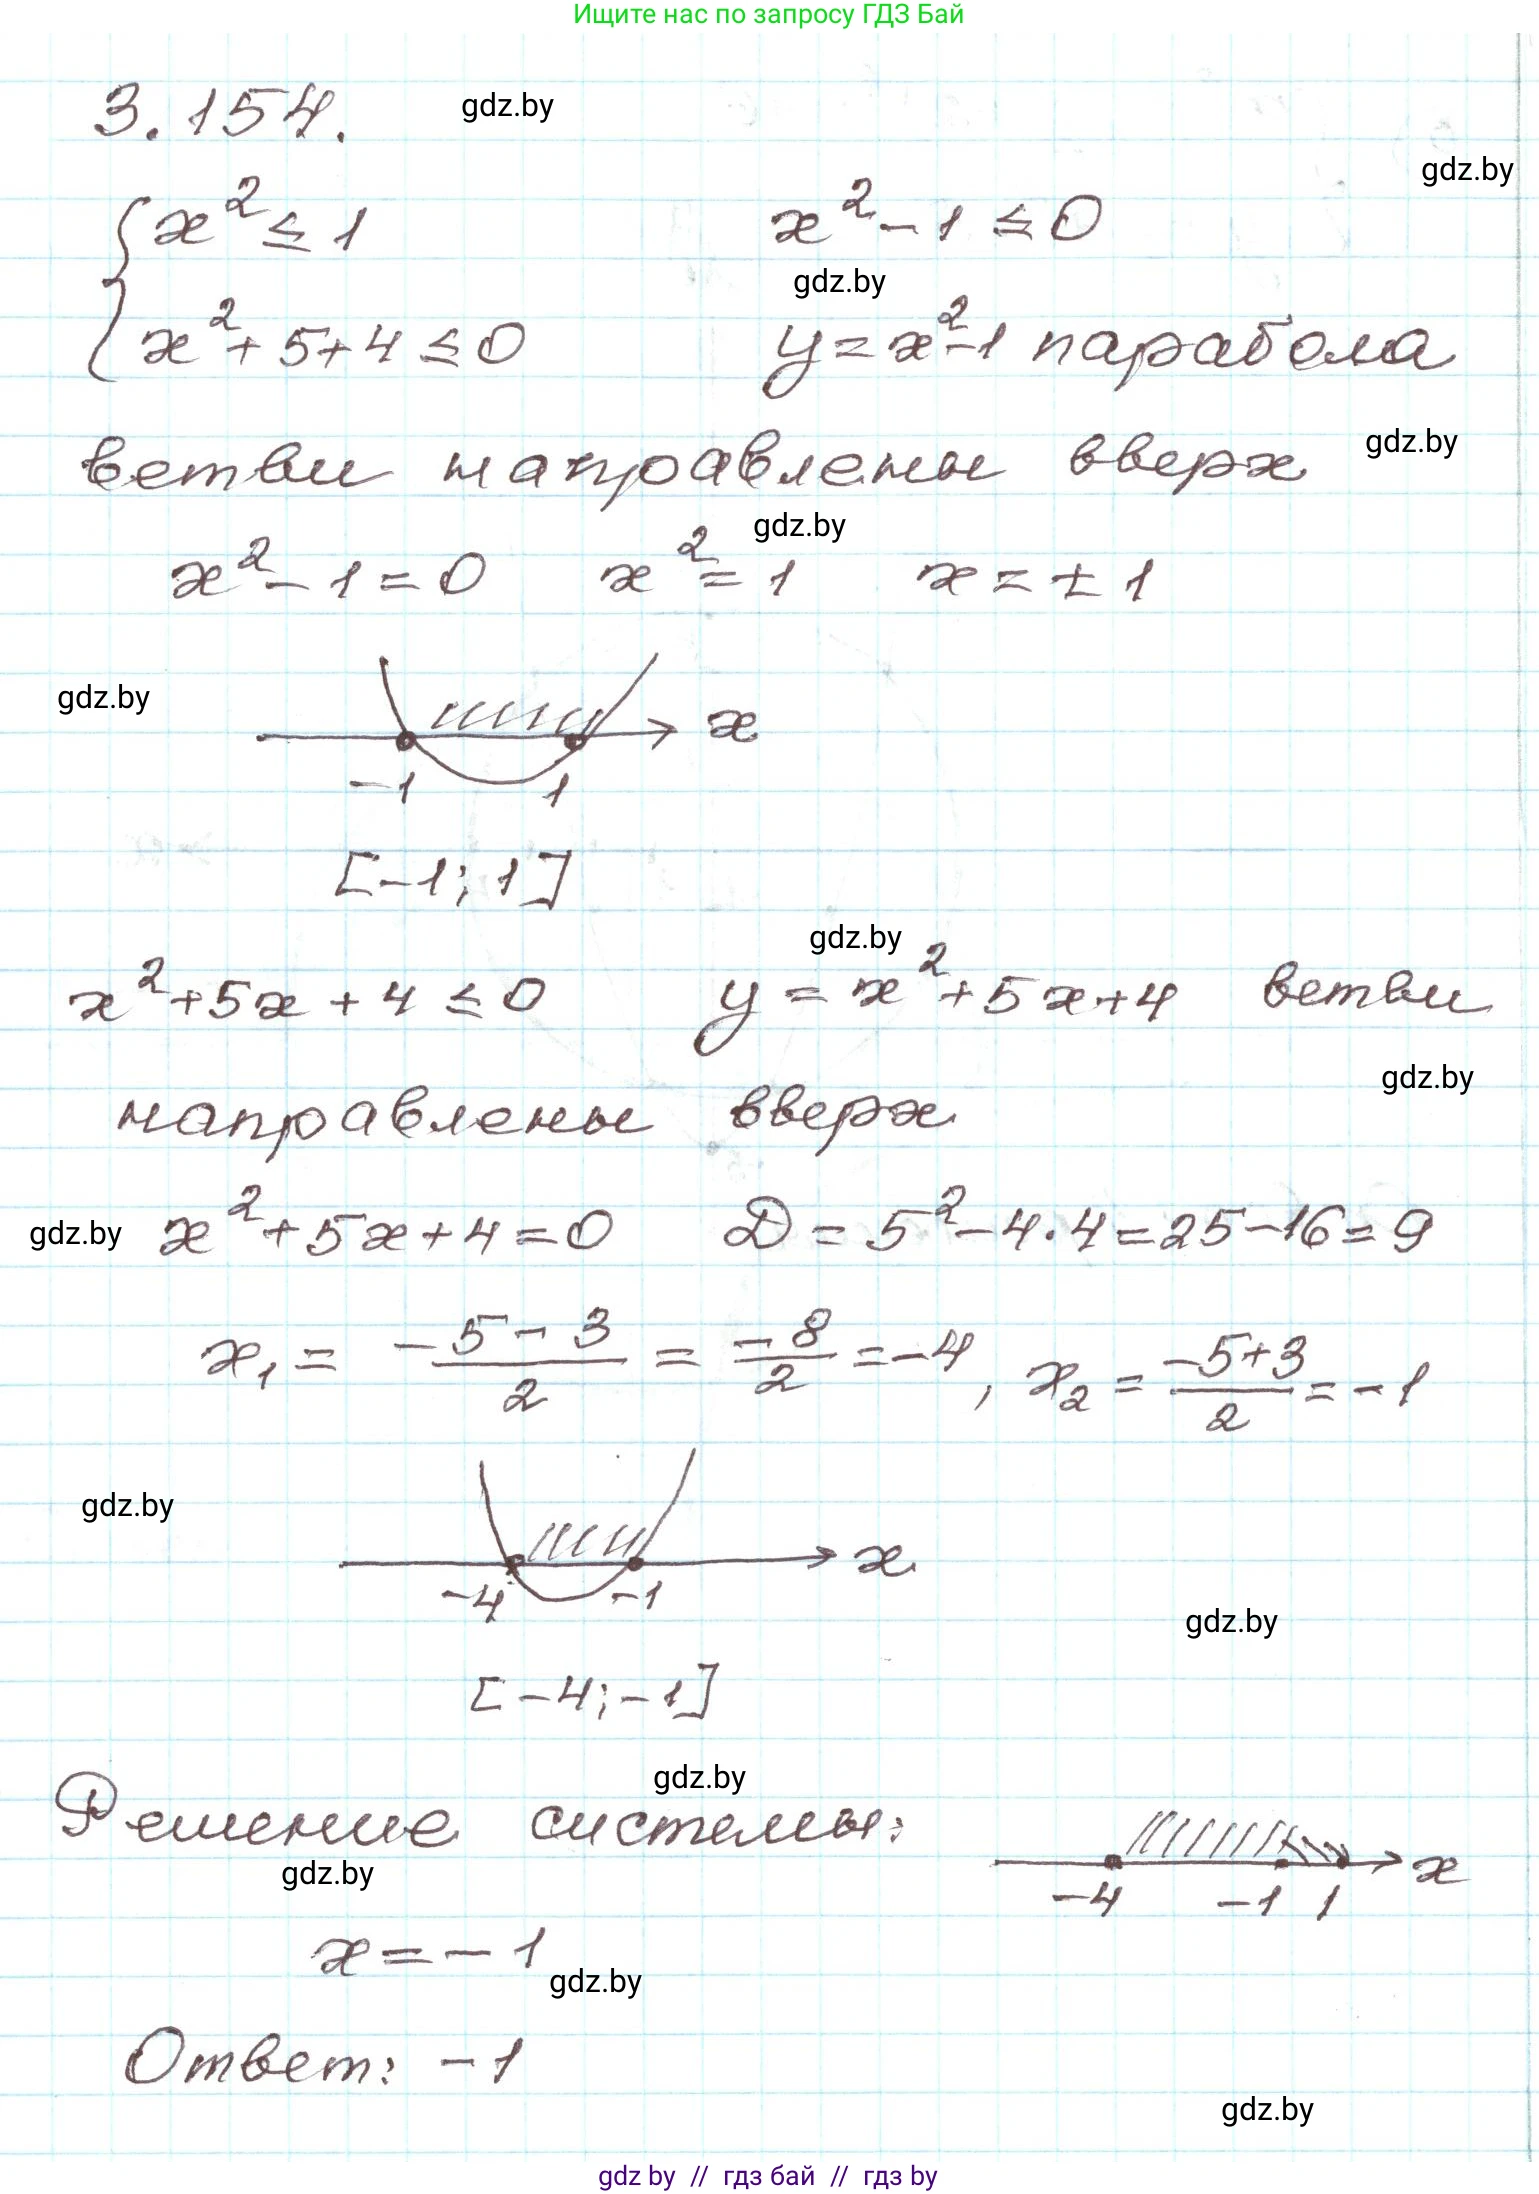 Ищите нас по запросу ГДЗ Бай
3.154. gdz.by
gdz.by
{ x² ≤ 1 x² - 1 ≤ 0
gdz.by
x² + 5 + 4 ≤ 0 y = x² - 1 парабола
ветви направлены вверх gdz.by
gdz.by
x² - 1 = 0 x² = 1 x = ± 1
gdz.by
x
-1 1
[-1; 1]
gdz.by
x² + 5x + 4 ≤ 0 y = x² + 5x + 4 ветви
gdz.by
направлены вверх
gdz.by x² + 5x + 4 = 0 D = 5² - 4·4 = 25 - 16 = 9
x₁ = (-5 - 3)/2 = -8/2 = -4, x₂ = (-5 + 3)/2 = -1
gdz.by
x
-4 -1
gdz.by
[-4; -1]
gdz.by
Решение системы:
gdz.by
x
-4 -1 1
x = -1
gdz.by
Ответ: -1
gdz.by
gdz by // гдз бай // гдз by